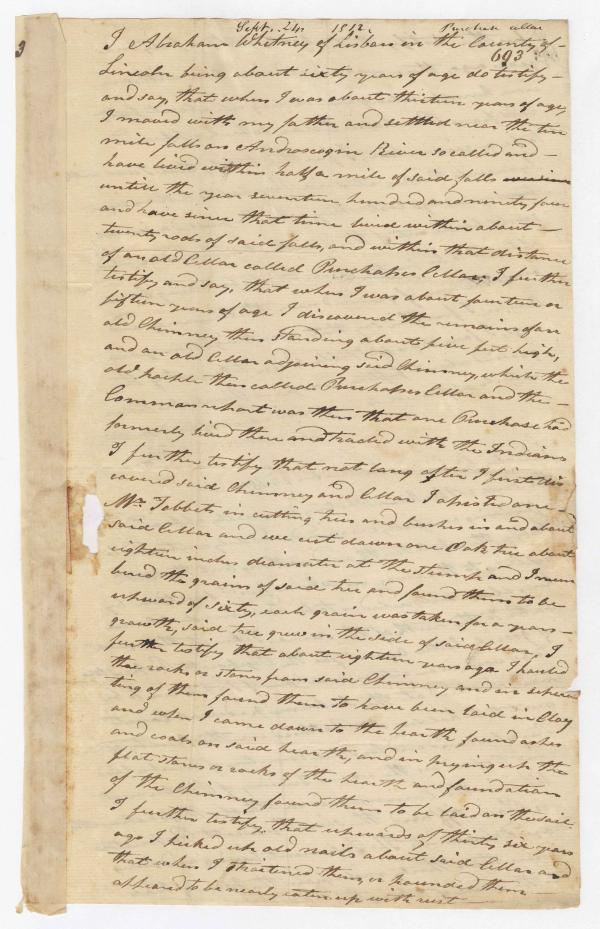 Sept. 24, 1812. Purchase cellar
603
3
I Abraham Whitney of Lisbon in the County of
Lincoln being about sixty years of age do testify
and say, that when I was about thirteen years of age,
I moved with my father and settled near the ten
mile falls on Androscogin River so called and
have lived within half a mile of said falls
untill the year seventeen hundred and ninety four
and have since that time lived within about
twenty rods of said falls, and within that distance
of an old Cellar called Purchases Cellar; I further
testify and say, that when I was about fourteen or
fifteen years of age I discovered the remains of an
old Chimney then standing about five feet high,
and an old Cellar adjoining said Chimney, which the
old people then called Purchases Cellar and the
Common report was then that one Purchase had
formerly lived there and traded with the Indians
I further testify that not long after I first dis
covered said Chimney and Cellar I assisted one
Mr. Tebbets in cutting trees and bushes in and about
said Cellar and we cut down one Oak tree about
eighteen inches diameter at the stump and I num
bered the grains of said tree and found them to be
upward of sixty, each grain was taken for a years
growth, said tree grew in the side of said Cellar, I
further testify that about eighteen years ago I hauled
the rocks or stones from said Chimney and in sepera
ting of them found them to have been laid in Clay
and when I came down to the hearth found ashes
and coals on said hearth, and in prying up the
flat stones or rocks of the hearth and foundation
of the Chimney found them to be laid on the soil
I further testify, that upwards of thirty six years
ago I picked up old nails about said Cellar and
that when I straitened them, or pounded them
appeared to be nearly eaten up with rust